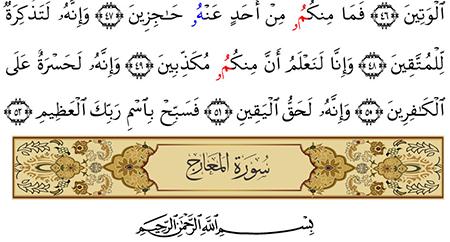 ٱلۡوَتِينَ ﴿٤٦﴾ فَمَا مِنكُمُۥ مِنۡ أَحَدٍ عَنۡهُۥ حَٰجِزِينَ ﴿٤٧﴾ وَإِنَّهُۥ لَتَذۡكِرَةٞ
لِّلۡمُتَّقِينَ ﴿٤٨﴾ وَإِنَّا لَنَعۡلَمُ أَنَّ مِنكُمُۥ مُكَذِّبِينَ ﴿٤٩﴾ وَإِنَّهُۥ لَحَسۡرَةٌ عَلَى
ٱلۡكَٰفِرِينَ ﴿٥٠﴾ وَإِنَّهُۥ لَحَقُّ ٱلۡيَقِينِ ﴿٥١﴾ فَسَبِّحۡ بِٱسۡمِ رَبِّكَ ٱلۡعَظِيمِ ﴿٥٢﴾
سُورَةُ المَعَارِجِ
بِسۡمِ ٱللَّهِ ٱلرَّحۡمَٰنِ ٱلرَّحِيمِ